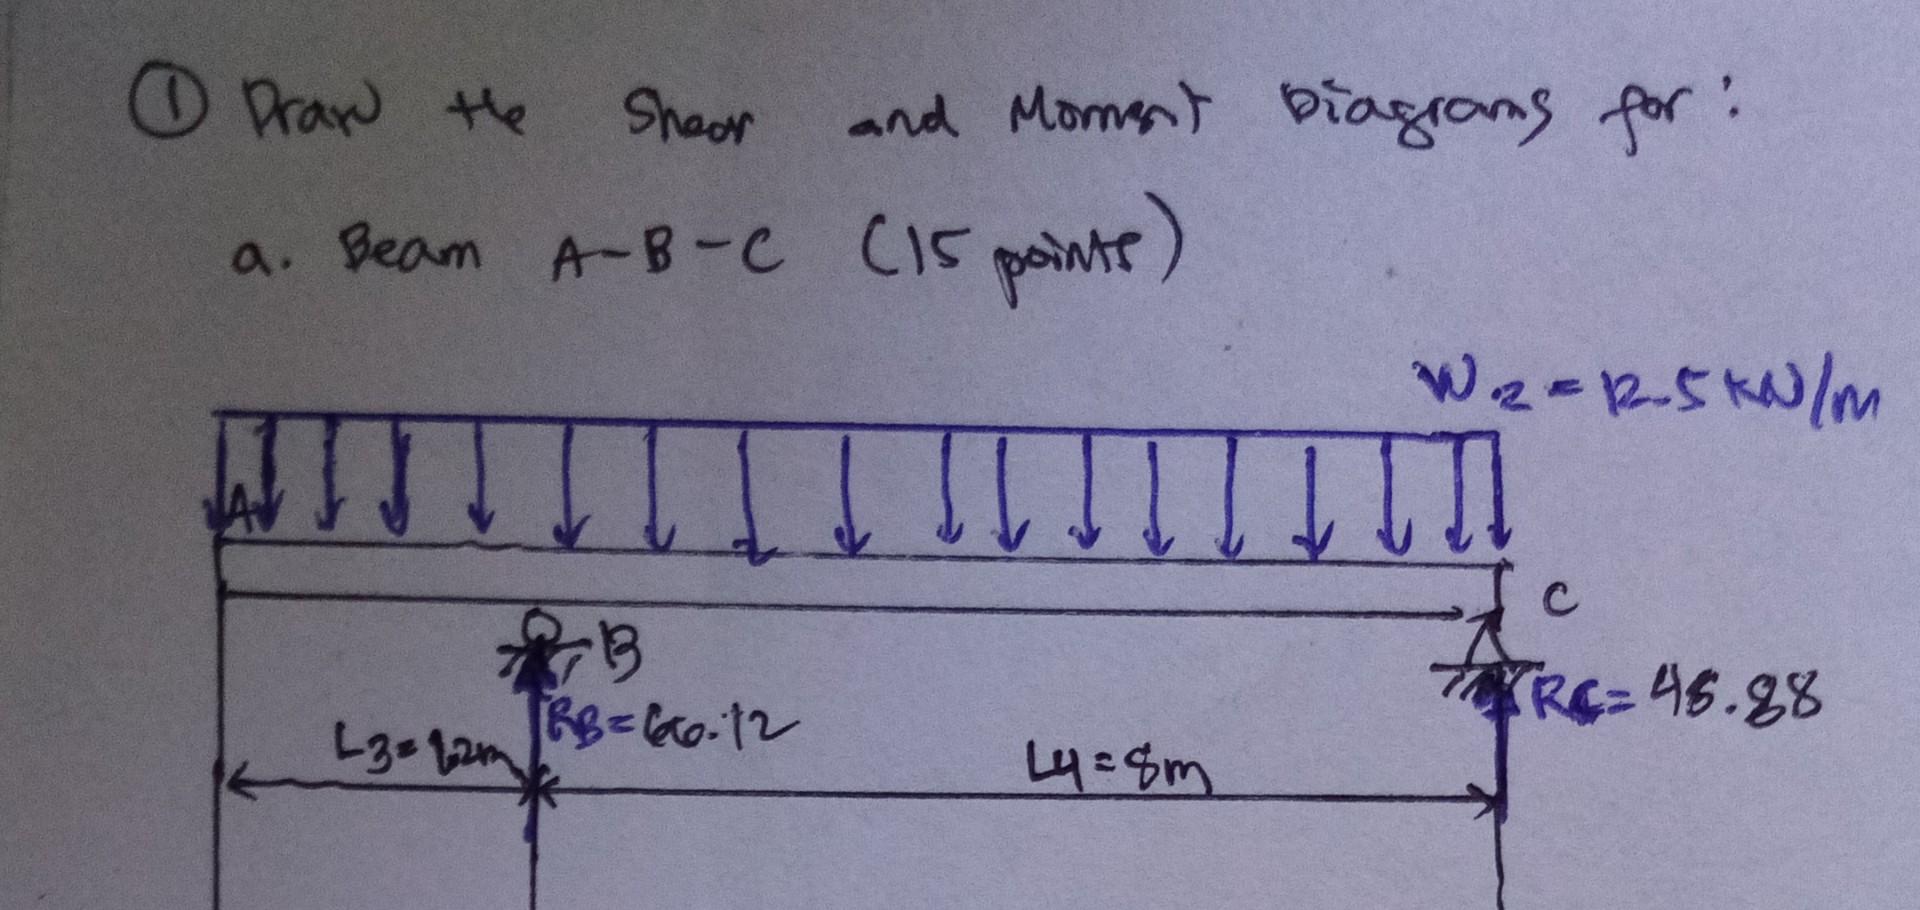 ① Draw the Shear and Moment Diagrams for:
a. Beam A-B-C (15 points)
W2 = 12.5 KN/m
A
C
B
RC = 48.88
RB = 66.12
L3 = 1.2m
L4 = 8m